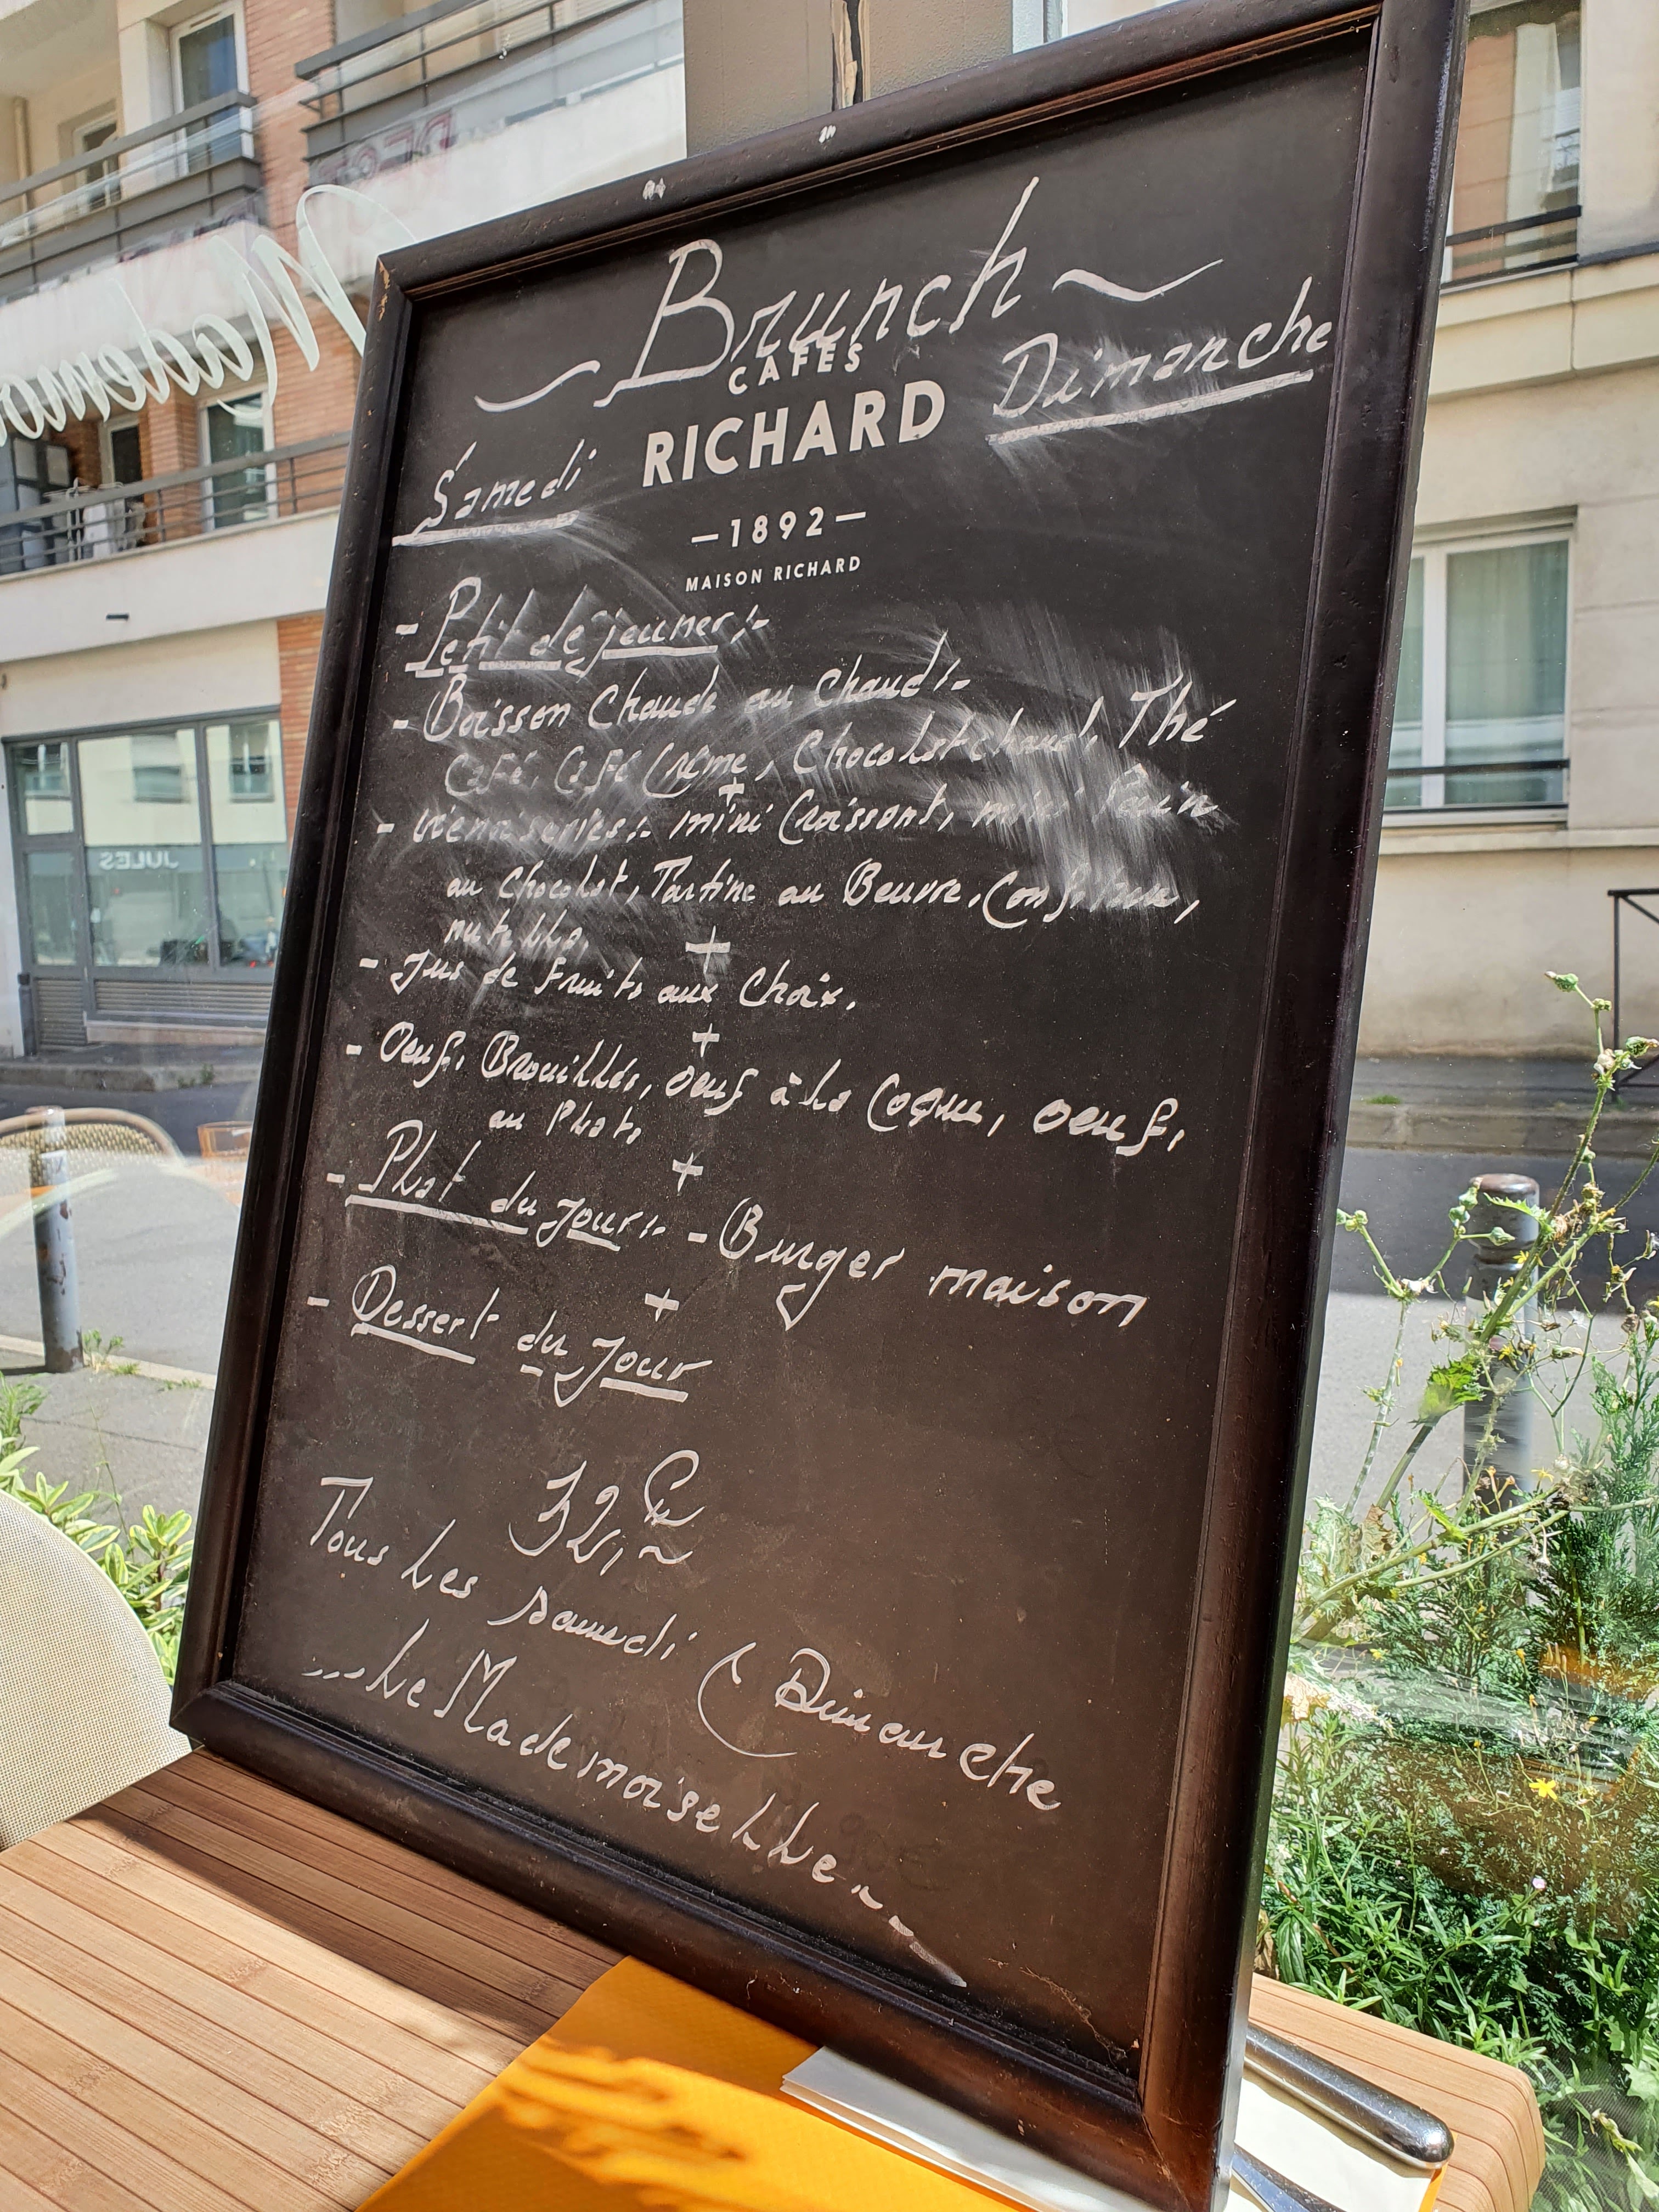 Brunch
CAFÉS
RICHARD
Dimanche
Samedi
—1892—
MAISON RICHARD
- Petit déjeuner :-
- Boisson Chaude au Chaud :-
Café, Café Crème, Chocolat chaud, Thé
+
- Viennoiseries :- mini Croissant, mini Pain
au Chocolat, Tartine au Beurre, Confiture,
nutella.
+
- Jus de fruits aux Choix.
+
- Oeufs Brouillés, oeuf à la Coque, oeufs
au Plat,
+
- Plat du Jour :- - Burger maison
+
- Dessert du Jour
32,~ €
Tous Les Samedi & Dimanche
... Le Mademoiselle
Mademoi
JULES